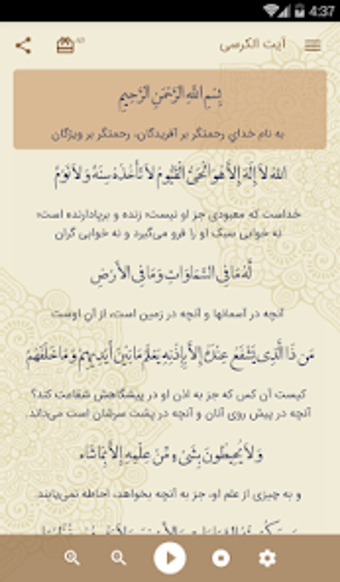 4:37
آیت الکرسی
بِسْمِ اللَّهِ الرَّحْمَنِ الرَّحِيمِ
به نام خدای رحمتگر بر آفریدگان، رحمتگر بر ویژگان
اللَّهُ لاَ إِلَهَ إِلاَّ هُوَ الْحَيُّ الْقَيُّومُ لاَ تَأْخُذُهُ سِنَةٌ وَلاَ نَوْمٌ
خداست که معبودی جز او نیست؛ زنده و برپادارنده است؛
نه خوابی سبک او را فرو می‌گیرد و نه خوابی گران
لَّهُ مَا فِي السَّمَاوَاتِ وَمَا فِي الأَرْضِ
آنچه در آسمانها و آنچه در زمین است، از آن اوست
مَن ذَا الَّذِي يَشْفَعُ عِنْدَهُ إِلاَّ بِإِذْنِهِ يَعْلَمُ مَا بَيْنَ أَيْدِيهِمْ وَمَا خَلْفَهُمْ
کیست آن کس که جز به اذن او در پیشگاهش شفاعت کند؟
آنچه در پیش روی آنان و آنچه در پشت سرشان است می‌داند.
وَلاَ يُحِيطُونَ بِشَيْءٍ مِّنْ عِلْمِهِ إِلاَّ بِمَا شَاء
و به چیزی از علم او، جز به آنچه بخواهد، احاطه نمی‌یابند.